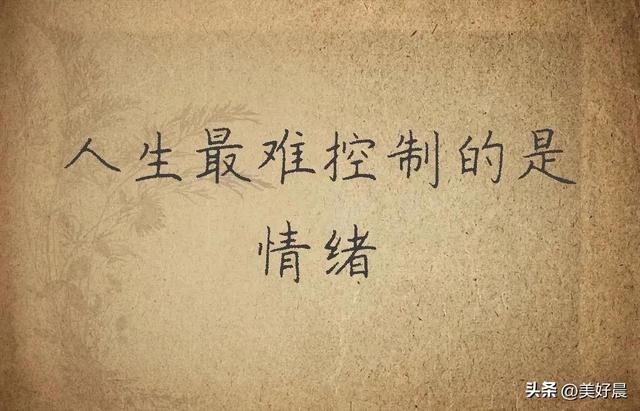 人生最难控制的是
情绪
头条 @美好晨